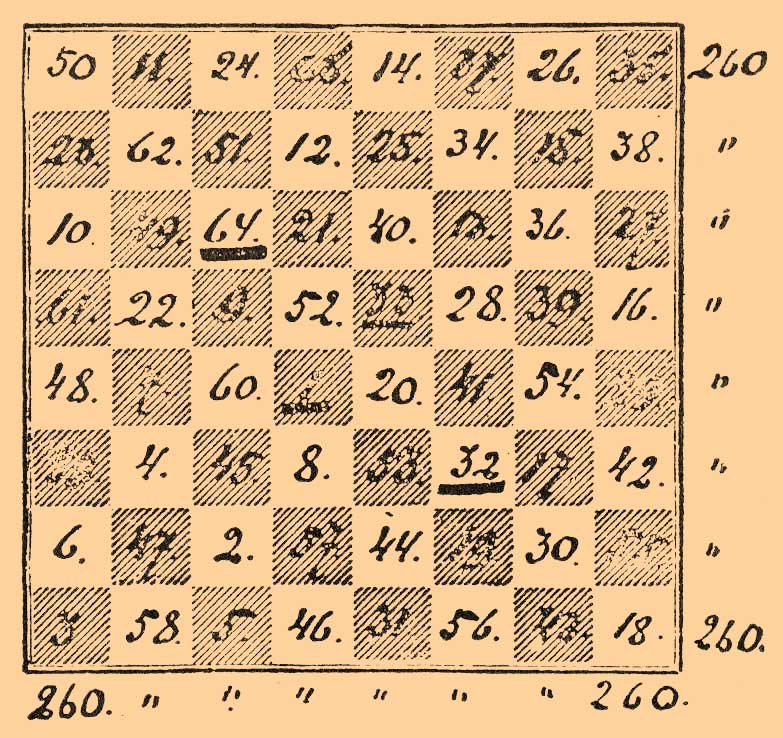 50 11. 24. 63. 14. 37. 26. 35. 260
23. 62. 51. 12. 25. 34. 15. 38. "
10. 49. 64. 21. 40. 13. 36. 27. "
61. 22. 9. 52. 33 28. 39. 16. "
48. 7. 60. 1 20. 41. 54. "
4. 45. 8. 53. 32 17. 42. "
6. 47. 2. 57. 44. 30. "
3 58. 5. 46. 31. 56. 43. 18. 260.
260. " " " " " " 260.